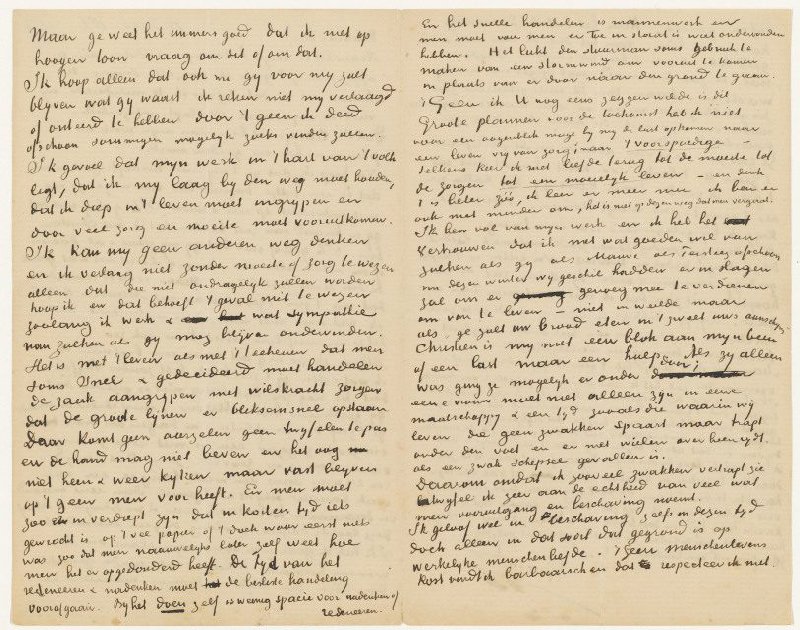 Maar ge weet het immers goed dat ik niet op
hoogen toon vraag om dit of om dat.
Ik hoop alleen dat ook nu gij voor mij zult
blijven wat gij waart ik reken niet mij verlaagd
of onteerd te hebben door 't geen ik deed
ofschoon sommigen mogelijk zoiets vinden zullen.
Ik gevoel dat mijn werk in 't hart van 't volk
ligt, dat ik mij laag bij den weg moet houden,
dat ik diep in 't leven moet ingrijpen en
door veel zorg en moeite moet vooruitkomen.
Ik kan mij geen anderen weg denken
en ik verlang niet zonder moeite of zorg te wezen
alleen dat die niet ondragelijk zullen worden
hoop ik en dat behoeft 't geval niet te wezen
zoolang ik werk & wat sympathie
van zulken als gij mag blijven ondervinden.
Het is met 't leven als met 't teekenen dat men
soms snel & gedecideerd moet handelen
de zaak aangrijpen met wilskracht zorgen
dat de groote lijnen er bliksemsnel opstaan
Daar komt geen aarzelen geen twijfelen te pas
en de hand mag niet beven en het oog
niet heen & weer kijken maar vast blijven
op 't geen men voorheeft. En men moet
zoo er in verdiept zijn dat in korten tijd iets
gewrocht is op 't papier of 't doek waar eerst niets
was zoo dat men naauwelijks later zelf weet hoe
men het er opgedonderd heeft. De tijd van het
redeneeren & nadenken moet de besliste handeling
voorafgaan. Bij het doen zelf is weinig spatie voor nadenken of
redeneeren.
En het snelle handelen is mannenwerk en
men moet van men er toe in staat is wat ondervonden
hebben. Het lukt den stuurman soms gebruik te
maken van een stormwind om vooruit te komen
in plaats van er door naar den grond te gaan.
'T Geen ik U nog eens zeggen wilde is dit
Groote plannen voor de toekomst heb ik niet
voor een oogenblik moge bij mij de lust opkomen naar
een leven vrij van zorg, naar 't voorspoedige –
telkens keer ik met liefde terug tot de moeite tot
de zorgen tot een moeielijk leven – en denk
't is beter zóó, ik leer er meer mee ik ben er
ook niet minder om, het is niet op dezen weg dat men vergaat.
Ik ben vol van mijn werk en ik heb het
vertrouwen dat ik met wat goeden wil van
zulken als gij als Mauve als Tersteeg ofschoon
we dezen winter wij geschil hadden er in slagen
zal om er genoeg mee te verdienen
om van te leven – niet in weelde maar
als, ge zult uw brood eten in 't zweet uws aanschijns
Christien is mij niet een blok aan mijn been
of een last maar een hulp. Als zij alleen
was ging ze mogelijk er onder door;
eene vrouw moet niet alleen zijn in eene
maatschappij & een tijd zooals die waarin wij
leven die geen zwakken spaart maar trapt
onder den voet en er met wielen over heenrijdt.
als een zwak schepsel gevallen is.
Daarom omdat ik zooveel zwakken vertrapt zie
twijfel ik zeer aan de echtheid van veel wat
men vooruitgang en beschaving noemt.
Ik geloof wel in beschaving zelfs in dezen tijd
doch alleen in dat soort dat gegrond is op
werkelijke menschenliefde. 'T Geen menschenlevens
kost vindt ik barbaarsch en dat respecteer ik niet.